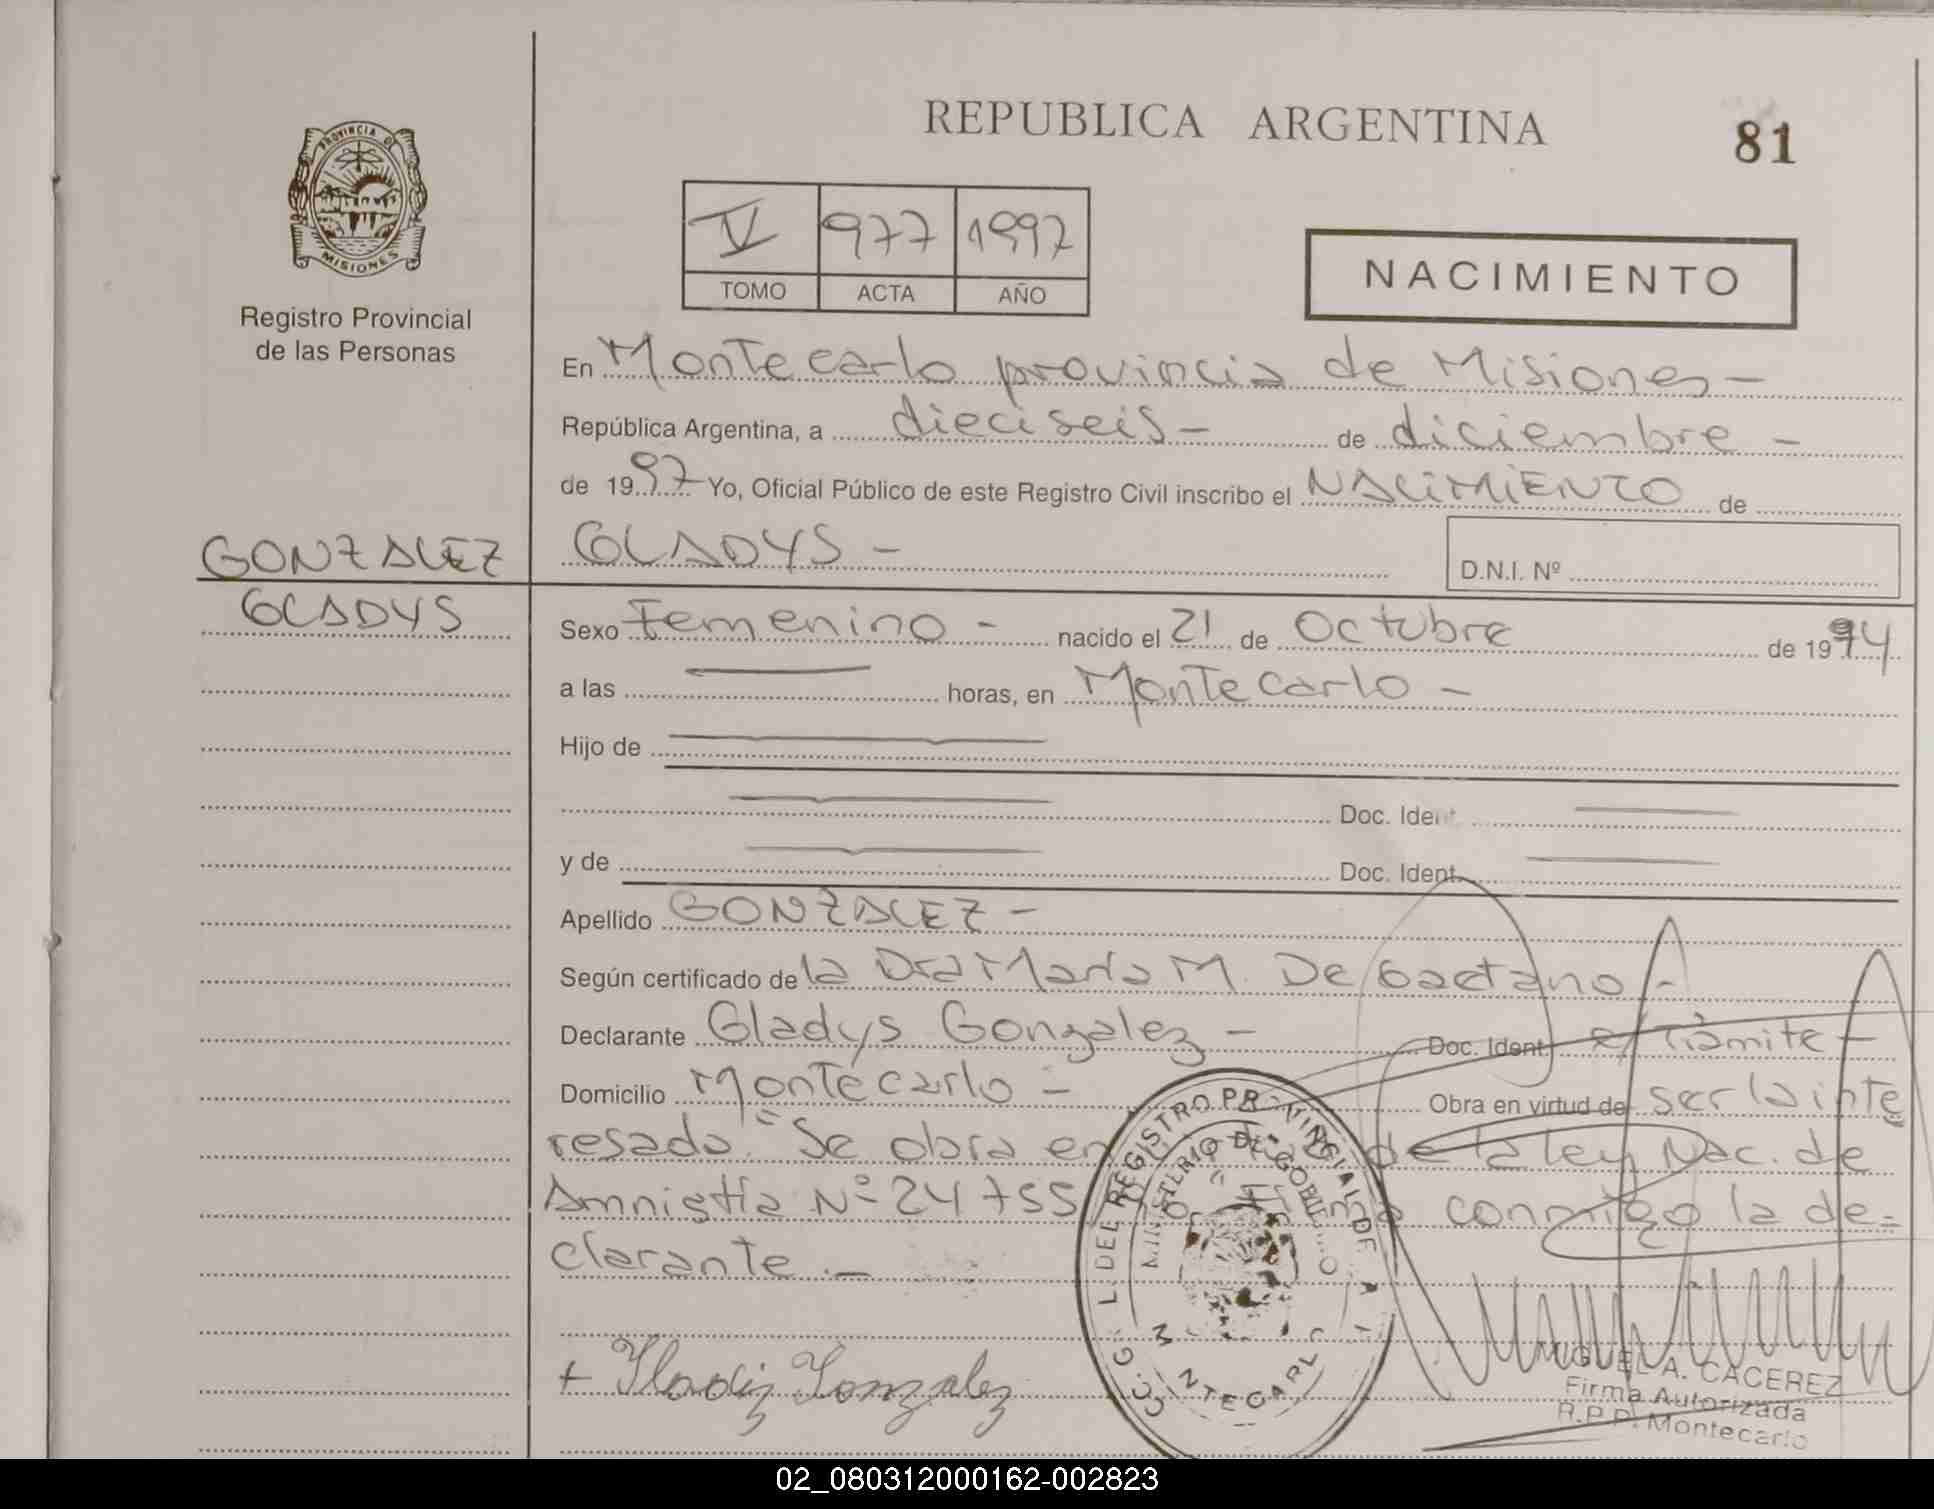 REPUBLICA ARGENTINA
81
PROVINCIA DE
MISIONES
Registro Provincial
de las Personas
IV 977 1997
TOMO ACTA AÑO
NACIMIENTO
En Montecarlo provincia de Misiones-
República Argentina, a dieciseis- de diciembre-
de 1997 Yo, Oficial Público de este Registro Civil inscribo el NACIMIENTO de
GONZALEZ
GLADYS-
D.N.I. Nº
GLADYS
Sexo Femenino- nacido el 21 de Octubre de 19 4
a las horas, en Montecarlo-
Hijo de
Doc. Ident.
y de Doc. Ident.
Apellido GONZALEZ-
Según certificado de la Dra Maria M. De Gaetano-
Declarante Gladys Gonzalez- Doc. Ident. e/Trámite-
Domicilio Montecarlo- Obra en virtud de ser la inte
resada. "Se obra en de la ley Nac. de
Amnistía Nº 24755 conmigo la de=
clarante.-
+ Gladiz Gonzalez
DEL REGISTRO PROVINCIAL DE
MINISTERIO DE GOBIERNO
MONTECARLO
MIGUEL A. CACEREZ
Firma Autorizada
R.P.P. Montecarlo
02_080312000162-002823